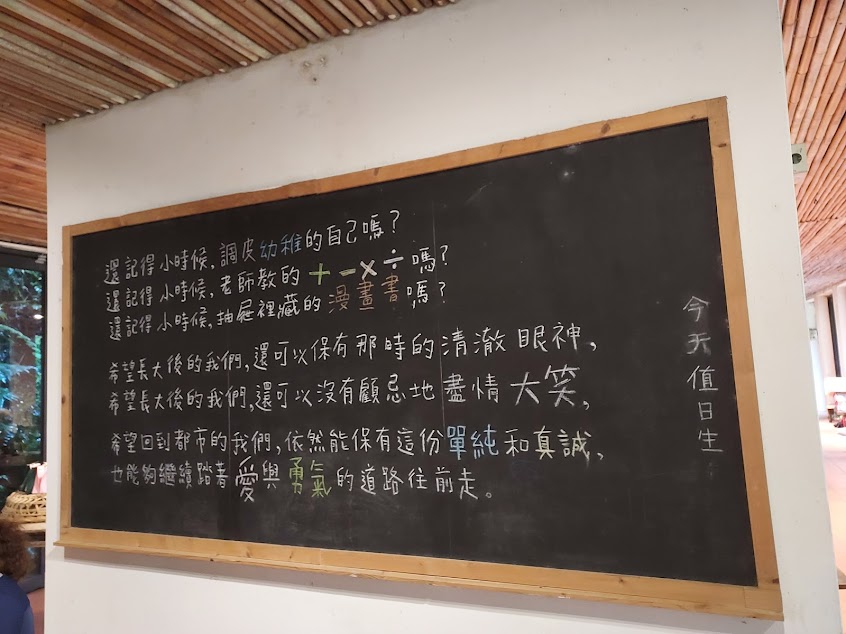 還記得小時候，調皮幼稚的自己嗎？
還記得小時候，老師教的＋－×÷嗎？
還記得小時候，抽屜裡藏的漫畫書嗎？
希望長大後的我們，還可以保有那時的清澈眼神，
希望長大後的我們，還可以沒有顧忌地盡情大笑，
希望回到都市的我們，依然能保有這份單純和真誠，
也能夠繼續踏著愛與勇氣的道路往前走。
今天值日生